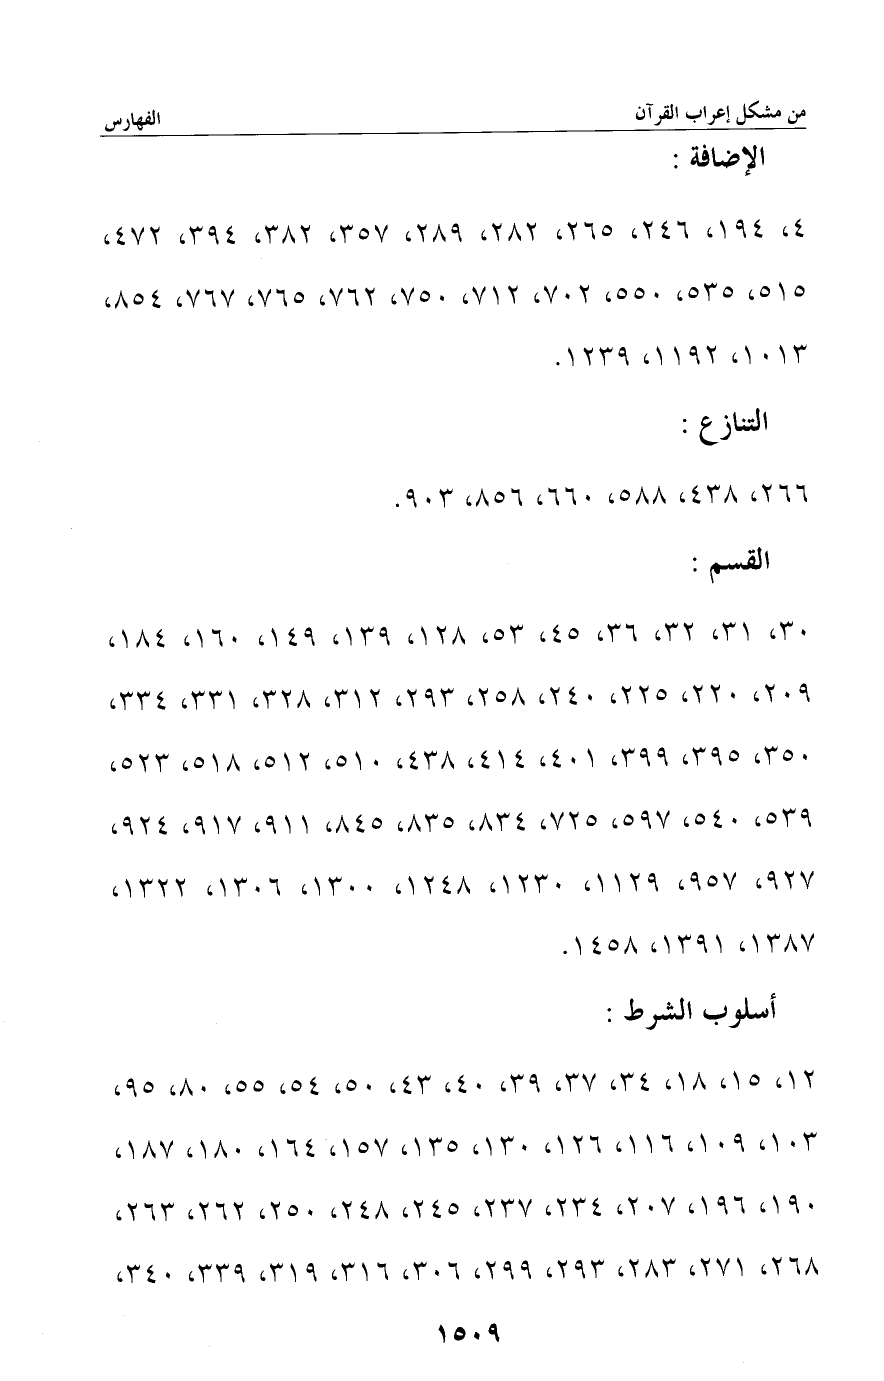 من مشكل إعراب القرآن الفهارس
الإضافة :
٤، ١٩٤، ٢٤٦، ٢٦٥، ٢٨٢، ٢٨٩، ٣٥٧، ٣٨٢، ٣٩٤، ٤٧٢،
٥١٥، ٥٣٥، ٥٥٠، ٧٠٢، ٧١٢، ٧٥٠، ٧٦٢، ٧٦٥، ٧٦٧، ٨٥٤،
١٠١٣، ١١٩٢، ١٢٣٩.
التنازع :
٢٦٦، ٤٣٨، ٥٨٨، ٦٦٠، ٨٥٦، ٩٠٣.
القسم :
٣٠، ٣١، ٣٢، ٣٦، ٤٥، ٥٣، ١٢٨، ١٣٩، ١٤٩، ١٦٠، ١٨٤،
٢٠٩، ٢٢٠، ٢٢٥، ٢٤٠، ٢٥٨، ٢٩٣، ٣١٢، ٣٢٨، ٣٣١، ٣٣٤،
٣٥٠، ٣٩٥، ٣٩٩، ٤٠١، ٤١٤، ٤٣٨، ٥١٠، ٥١٢، ٥١٨، ٥٢٣،
٥٣٩، ٥٤٠، ٥٩٧، ٧٢٥، ٨٣٤، ٨٣٥، ٨٤٥، ٩١١، ٩١٧، ٩٢٤،
٩٢٧، ٩٥٧، ١١٢٩، ١٢٣٠، ١٢٤٨، ١٣٠٠، ١٣٠٦، ١٣٢٢،
١٣٨٧، ١٣٩١، ١٤٥٨.
أسلوب الشرط :
١٢، ١٥، ١٨، ٣٤، ٣٧، ٣٩، ٤٠، ٤٣، ٥٠، ٥٤، ٥٥، ٨٠، ٩٥،
١٠٣، ١٠٩، ١١٦، ١٢٦، ١٣٠، ١٣٥، ١٥٧، ١٦٤، ١٨٠، ١٨٧،
١٩٠، ١٩٦، ٢٠٧، ٢٣٤، ٢٣٧، ٢٤٥، ٢٤٨، ٢٥٠، ٢٦٢، ٢٦٣،
٢٦٨، ٢٧١، ٢٨٣، ٢٩٣، ٢٩٩، ٣٠٦، ٣١٦، ٣١٩، ٣٣٩، ٣٤٠،
١٥٠٩